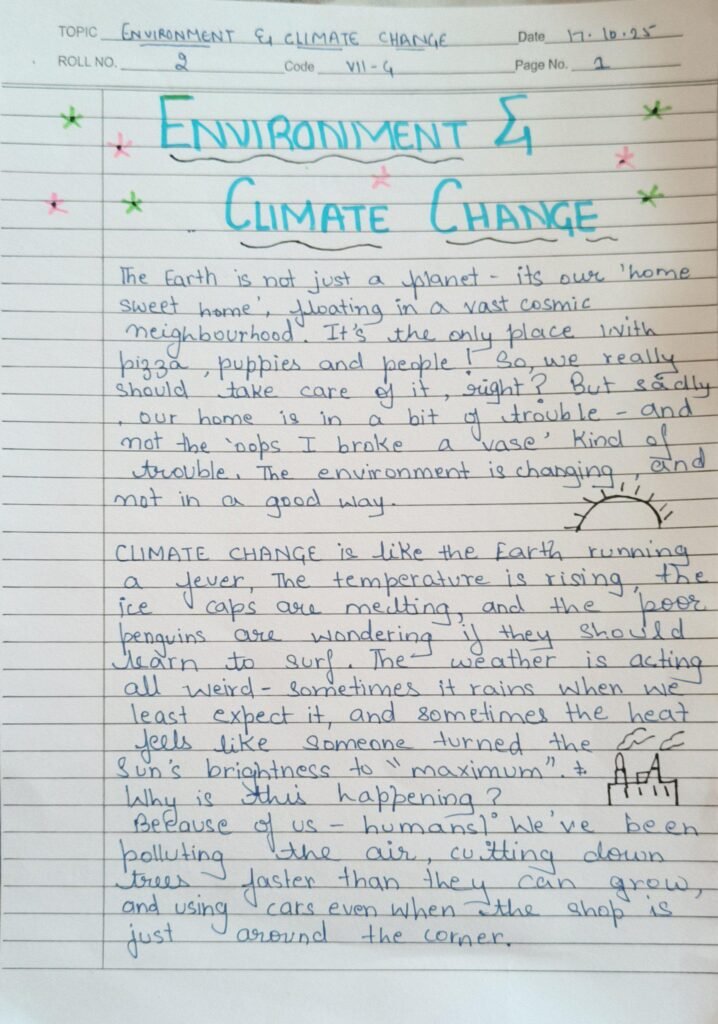 TOPIC ENVIRONMENT & CLIMATE CHANGE Date 17.10.25
ROLL NO. 2 Code VII-G Page No. 1
ENVIRONMENT &
CLIMATE CHANGE
The Earth is not just a planet - its our 'home
sweet home', floating in a vast cosmic
neighbourhood. It's the only place with
pizza, puppies and people! So, we really
should take care of it, right? But sadly
, our home is in a bit of trouble - and
not the 'oops I broke a vase' kind of
trouble. The environment is changing, and
not in a good way.
CLIMATE CHANGE is like the Earth running
a fever, The temperature is rising, the
ice caps are melting, and the poor
penguins are wondering if they should
learn to surf. The weather is acting
all weird - sometimes it rains when we
least expect it, and sometimes the heat
feels like someone turned the
Sun's brightness to "maximum".
Why is this happening?
Because of us - humans! We've been
polluting the air, cutting down
trees faster than they can grow,
and using cars even when the shop is
just around the corner.